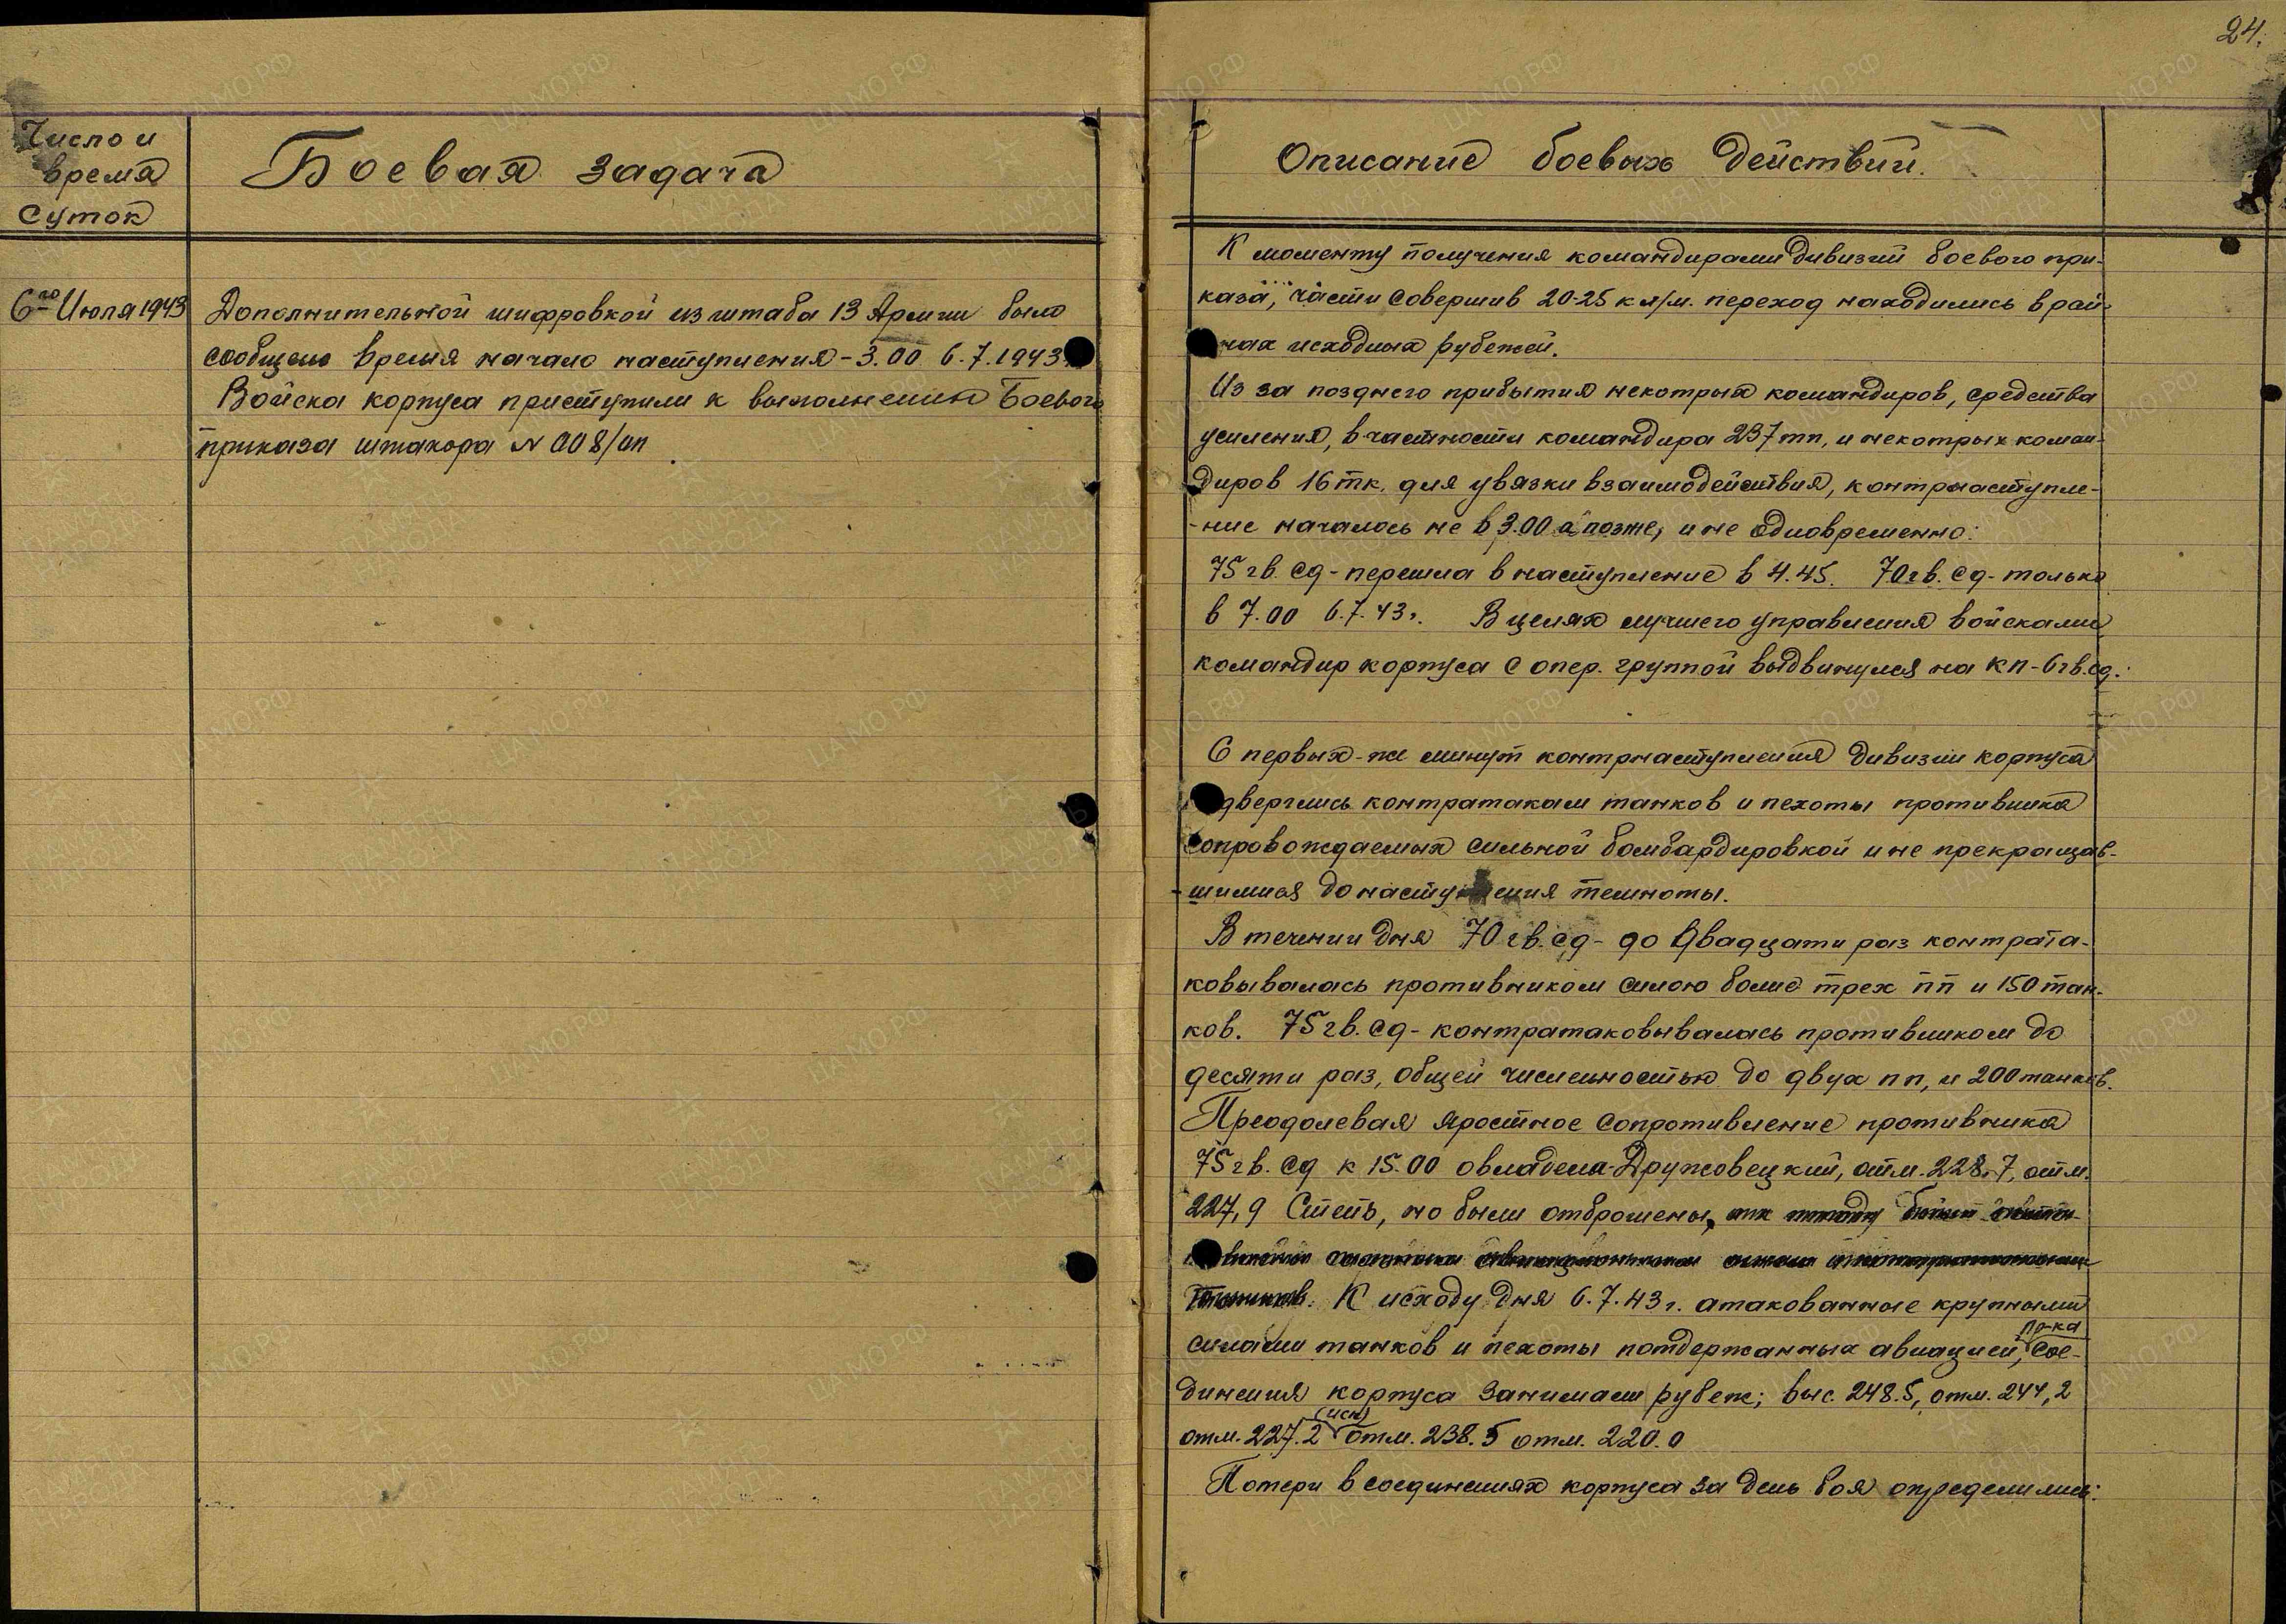 24.
Число и
время
суток
Боевая задача
6го Июля 1943
Дополнительной шифровкой из штаба 13 Армии было
сообщено время начало наступления - 3.00 6.7.1943
Войска корпуса приступили к выполнению Боевого
приказа штакора N 008/оп
Описание боевых действий.
К моменту получения командирами дивизий боевого при-
каза, части совершив 20-25 к л/м. переход находились в рай-
нах исходных рубежей.
Из за позднего прибытия некотрых командиров, средства
усиления, в частности командира 237 тп, и некотрых коман-
диров 16 тк. для увязки взаимодействия, контрнаступле-
-ние началось не в 3.00 а позже, и не одновременно:
75 гв. сд - перешла в наступление в 4.45. 70 гв. сд - только
в 7.00 6.7.43 г. В целях лучшего управления войсками
командир корпуса с опер. группой выдвинулся на кп - 6 гв. сд.
С первых - же минут контрнаступления дивизии корпуса
дверглись контратакам танков и пехоты противника
сопровождаемых сильной бомбардировкой и не прекращав-
-шимися до наступления темноты.
В течении дня 70 гв. сд - до двадцати раз контрата-
ковывалась противником силою более трех пп и 150 тан-
ков. 75 гв. сд - контратаковывалась противником до
десяти раз, общей численностью до двух пп, и 200 танков.
Преодолевая яростное сопротивление противника
75 гв. сд к 15.00 овладела Дружовецкий, отм. 228.7, отм.
227,9 Степь, но были отброшены,
К исходу дня 6.7.43 г. атакованные крупными
силами танков и пехоты потдержанных авиацией, пр-ка сое-
динения корпуса занимали рубеж; выс. 248.5, отм. 244,2
отм. 227.2 (иск) отм. 238.5 отм. 220.0
Потери в соединениях корпуса за день боя определились: